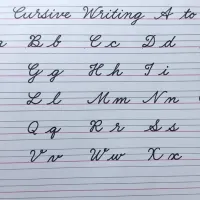 Cursive Writing A to
B b C c D d
G g H h I i
L l M m N n
Q q R r S s
V v W w X x